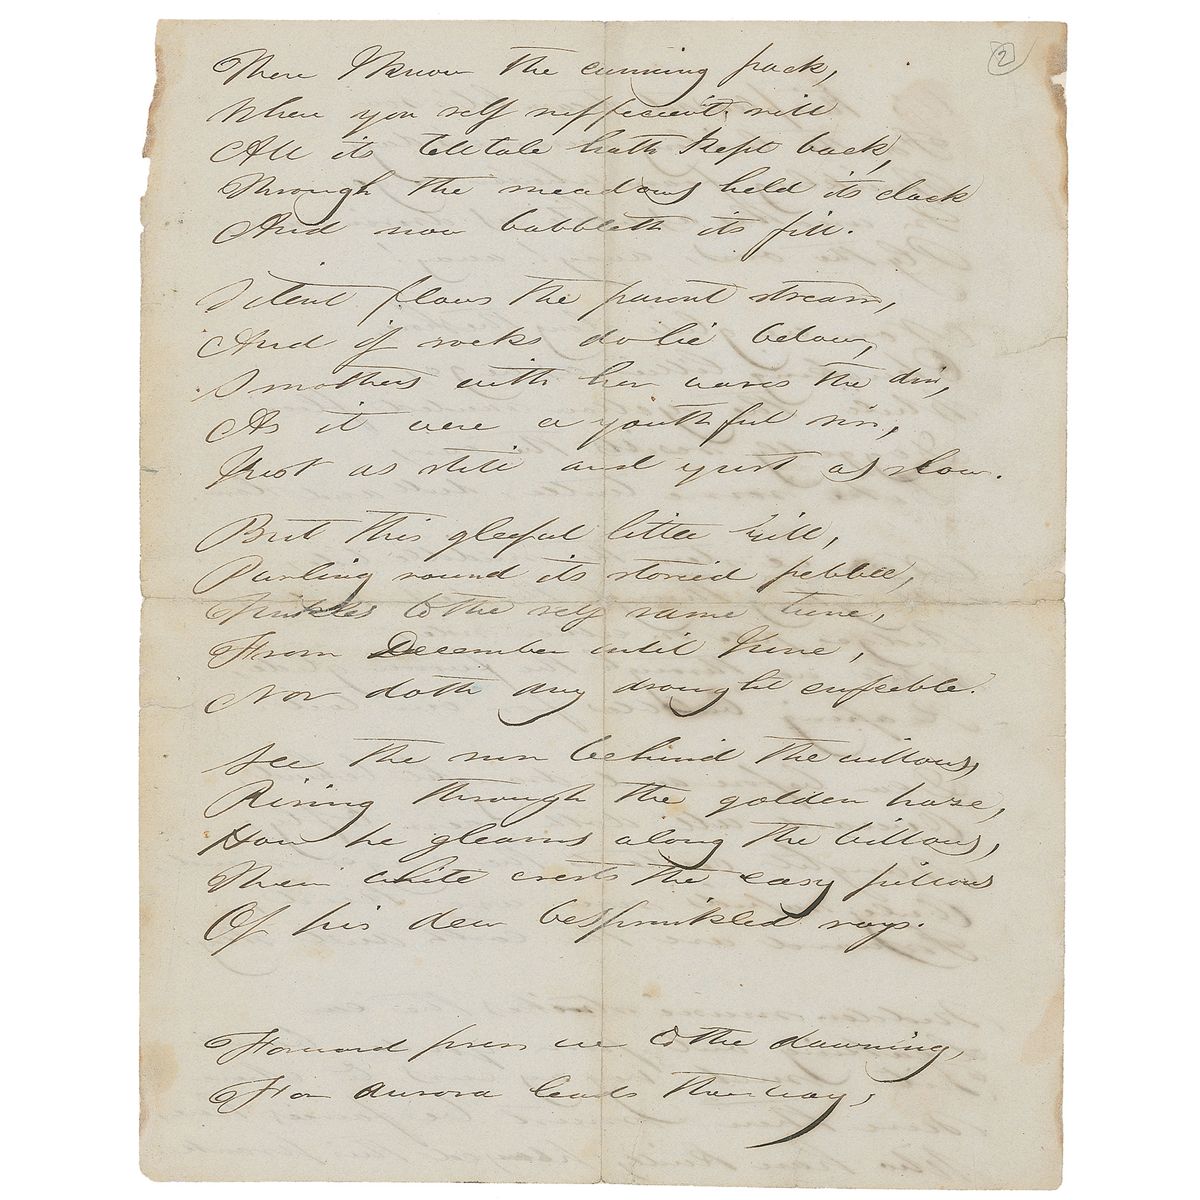 2
Then I know the cunning pack,
Where yon self sufficient rill
All its telltale hath kept back,
Through the meadows held its clack
And now bubbleth its fill.
Silent flows the parent stream,
And if rocks do lie below,
Smothers with her waves the din,
As it were a youthful sin,
Just as still and just as slow.
But this gleeful little rill,
Purling round its storied pebble,
Tinkles to the self same tune,
From December until June,
Nor doth any drought enfeeble.
See the sun behind the willows,
Rising through the golden haze,
How he gleams along the billows,
Their white crests the easy pillows
Of his dew besprinkled rays.
Forward press we to the dawning,
For Aurora leads the way,